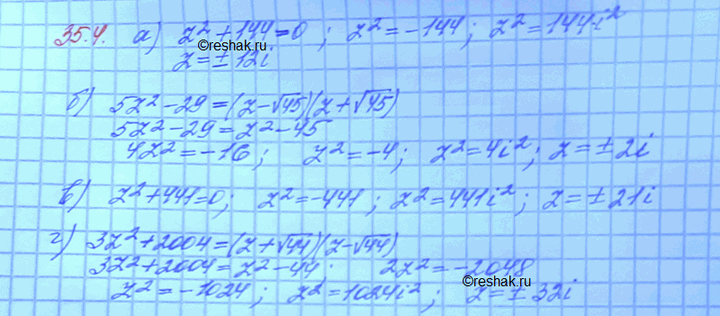 35.4. а) z² + 144 = 0 ; z² = -144 ; z² = 144i²
©reshak.ru
z = ± 12i
б) 5z² - 29 = (z - √45)(z + √45)
5z² - 29 = z² - 45
4z² = -16 ; z² = -4 ; z² = 4i² ; z = ± 2i
в) z² + 441 = 0 ; z² = -441 ; z² = 441i² ; z = ± 21i
г) 3z² + 2004 = (z + √44)(z - √44)
©reshak.ru
3z² + 2004 = z² - 44 ; 2z² = -2048
©reshak.ru
z² = -1024 ; z² = 1024i² ; z = ± 32i